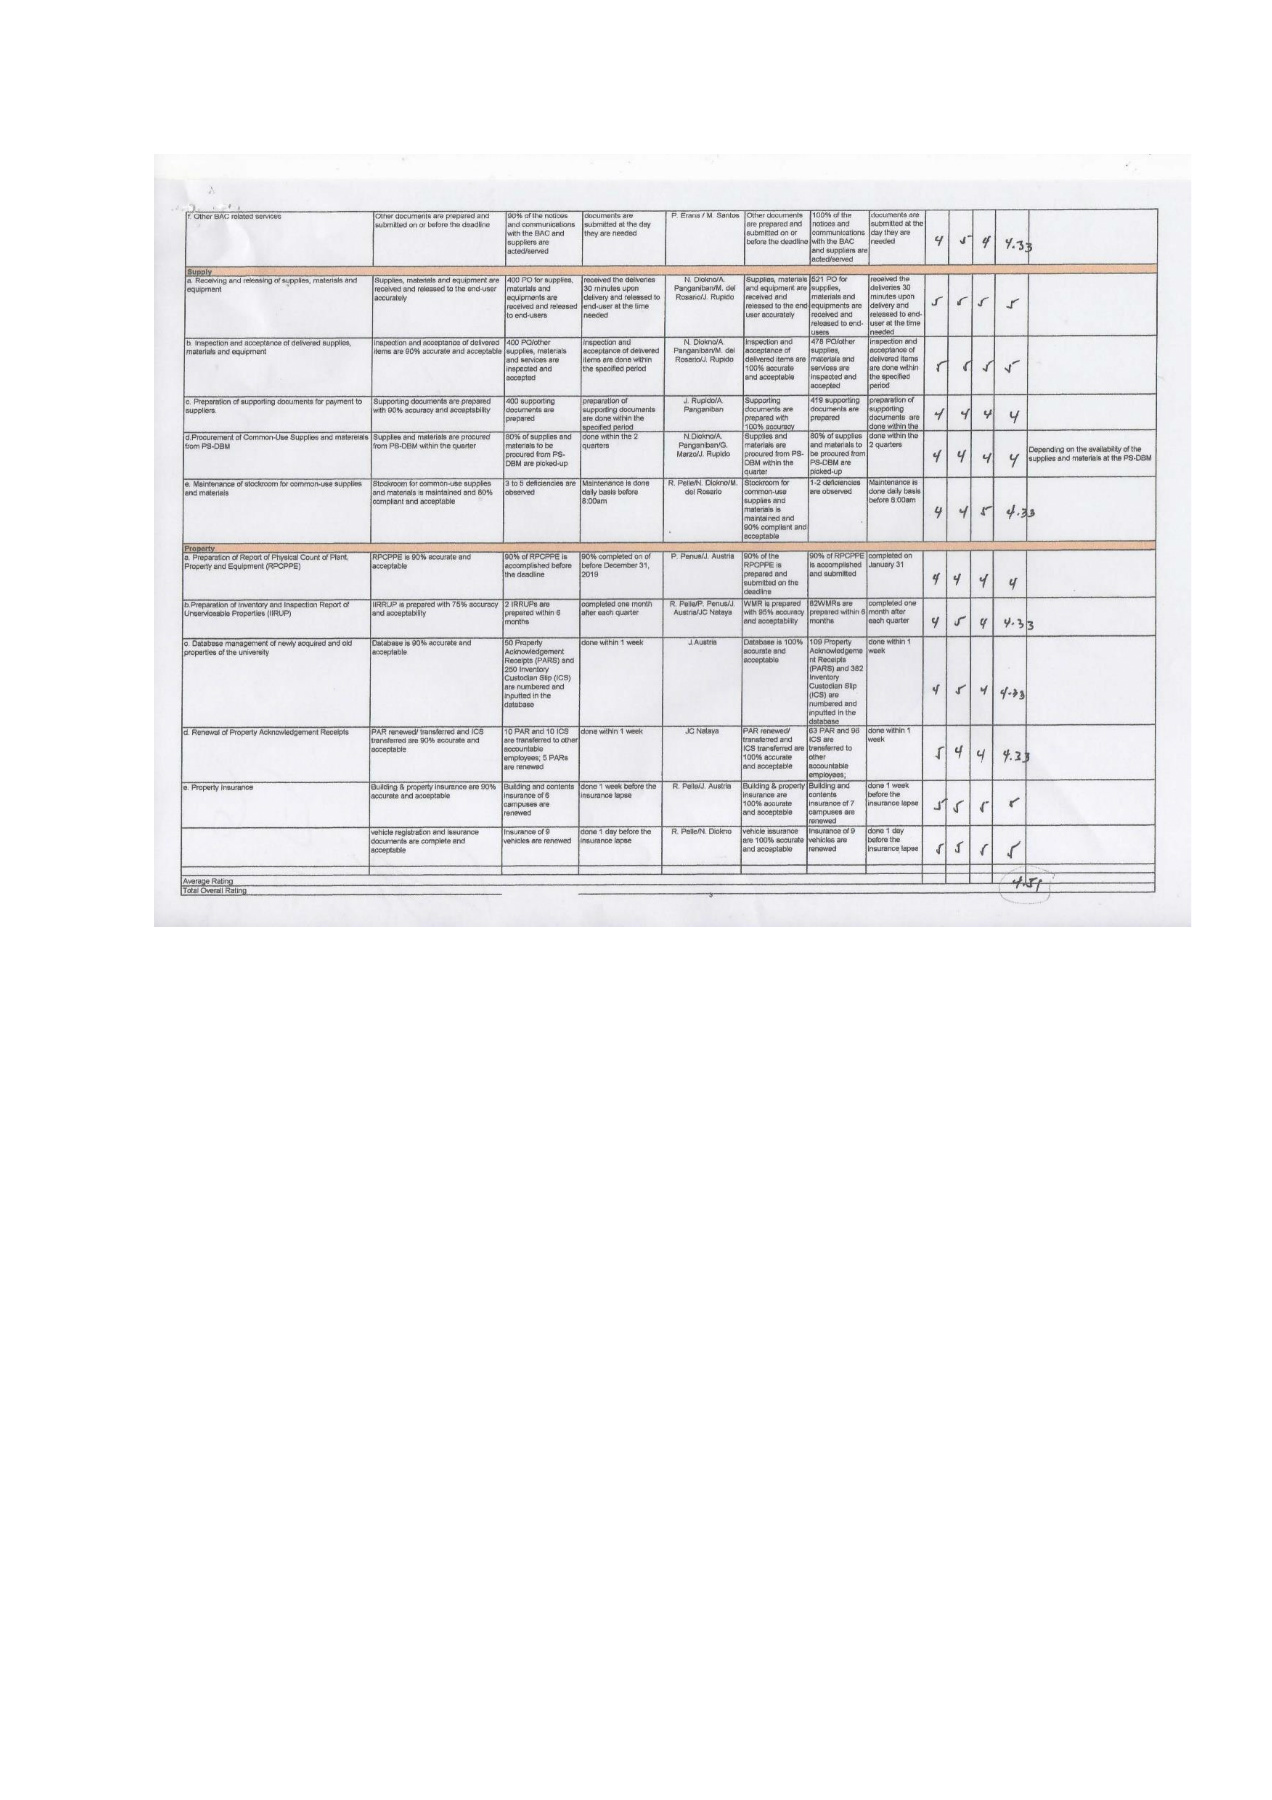 f. Other BAC related services
Other documents are prepared and
submitted on or before the deadline
90% of the notices
and communications
with the BAC and
suppliers are
acted/served
documents are
submitted at the day
they are needed
P. Erana / M. Santos
Other documents
are prepared and
submitted on or
before the deadline
100% of the
notices and
communications
with the BAC
and suppliers are
acted/served
documents are
submitted at the
day they are
needed
4 5 4 4.33
Supply
a. Receiving and releasing of supplies, materials and
equipment
Supplies, materials and equipment are
received and released to the end-user
accurately
400 PO for supplies,
materials and
equipments are
received and released
to end-users
received the deliveries
30 minutes upon
delivery and released to
end-user at the time
needed
N. Diokno/A.
Panganiban/M. del
Rosario/J. Rupido
Supplies, materials
and equipment are
received and
released to the end
user accurately
521 PO for
supplies,
materials and
equipments are
received and
released to end-
users
received the
deliveries 30
minutes upon
delivery and
released to end-
user at the time
needed
5 5 5 5
b. Inspection and acceptance of delivered supplies,
materials and equipment
Inspection and acceptance of delivered
items are 90% accurate and acceptable
400 PO/other
supplies, materials
and services are
inspected and
accepted
inspection and
acceptance of delivered
items are done within
the specified period
N. Diokno/A.
Panganiban/M. del
Rosario/J. Rupido
Inspection and
acceptance of
delivered items are
100% accurate
and acceptable
478 PO/other
supplies,
materials and
services are
inspected and
accepted
inspection and
acceptance of
delivered items
are done within
the specified
period
5 5 5 5
c. Preparation of supporting documents for payment to
suppliers.
Supporting documents are prepared
with 90% accuracy and acceptability
400 supporting
documents are
prepared
preparation of
supporting documents
are done within the
specified period
J. Rupido/A.
Panganiban
Supporting
documents are
prepared with
100% accuracy
419 supporting
documents are
prepared
preparation of
supporting
documents are
done within the
4 4 4 4
d.Procurement of Common-Use Supplies and matererials
from PS-DBM
Supplies and materials are procured
from PS-DBM within the quarter
80% of supplies and
materials to be
procured from PS-
DBM are picked-up
done within the 2
quarters
N.Diokno/A.
Panganiban/G.
Marzo/J. Rupido
Supplies and
materials are
procured from PS-
DBM within the
quarter
80% of supplies
and materials to
be procured from
PS-DBM are
picked-up
done within the
2 quarters
4 4 4 4
Depending on the availability of the
supplies and materials at the PS-DBM
e. Maintenance of stockroom for common-use supplies
and materials
Stockroom for common-use supplies
and materials is maintained and 80%
compliant and acceptable
3 to 5 deficiencies are
observed
Maintenance is done
daily basis before
8:00am
R. Pelle/N. Diokno/M.
del Rosario
Stockroom for
common-use
supplies and
materials is
maintained and
90% compliant and
acceptable
1-2 deficiencies
are observed
Maintenance is
done daily basis
before 8:00am
4 4 5 4.33
Property
a. Preparation of Report of Physical Count of Plant,
Property and Equipment (RPCPPE)
RPCPPE is 90% accurate and
acceptable
90% of RPCPPE is
accomplished before
the deadline
90% completed on of
before December 31,
2019
P. Penus/J. Austria
90% of the
RPCPPE is
prepared and
submitted on the
deadline
90% of RPCPPE
is accomplished
and submitted
completed on
January 31
4 4 4 4
b.Preparation of Inventory and Inspection Report of
Unserviceable Properties (IIRUP)
IIRRUP is prepared with 75% accuracy
and acceptability
2 IRRUPs are
prepared within 6
months
completed one month
after each quarter
R. Pelle/P. Penus/J.
Austria/JC Nataya
WMR is prepared
with 95% accuracy
and acceptability
82WMRs are
prepared within 6
months
completed one
month after
each quarter
4 5 4 4.33
c. Database management of newly acquired and old
properties of the university
Database is 90% accurate and
acceptable
50 Property
Acknowledgement
Receipts (PARS) and
250 Inventory
Custodian Slip (ICS)
are numbered and
inputted in the
database
done within 1 week
J.Austria
Database is 100%
accurate and
acceptable
109 Property
Acknowledgeme
nt Receipts
(PARS) and 382
Inventory
Custodian Slip
(ICS) are
numbered and
inputted in the
database
done within 1
week
4 5 4 4.33
d. Renewal of Property Acknowledgement Receipts
PAR renewed/ transferred and ICS
transferred are 90% accurate and
acceptable
10 PAR and 10 ICS
are transferred to other
accountable
employees; 5 PARs
are renewed
done within 1 week
JC Nataya
PAR renewed/
transferred and
ICS transferred are
100% accurate
and acceptable
63 PAR and 96
ICS are
transferred to
other
accountable
employees;
done within 1
week
5 4 4 4.33
e. Property insurance
Building & property insurance are 90%
accurate and acceptable
Building and contents
insurance of 6
campuses are
renewed
done 1 week before the
insurance lapse
R. Pelle/J. Austria
Building & property
insurance are
100% accurate
and acceptable
Building and
contents
insurance of 7
campuses are
renewed
done 1 week
before the
insurance lapse
5 5 5 5
vehicle registration and issurance
documents are complete and
acceptable
Insurance of 9
vehicles are renewed
done 1 day before the
insurance lapse
R. Pelle/N. Diokno
vehicle issurance
are 100% accurate
and acceptable
Insurance of 9
vehicles are
renewed
done 1 day
before the
insurance lapse
5 5 5 5
Average Rating
4.51
Total Overall Rating